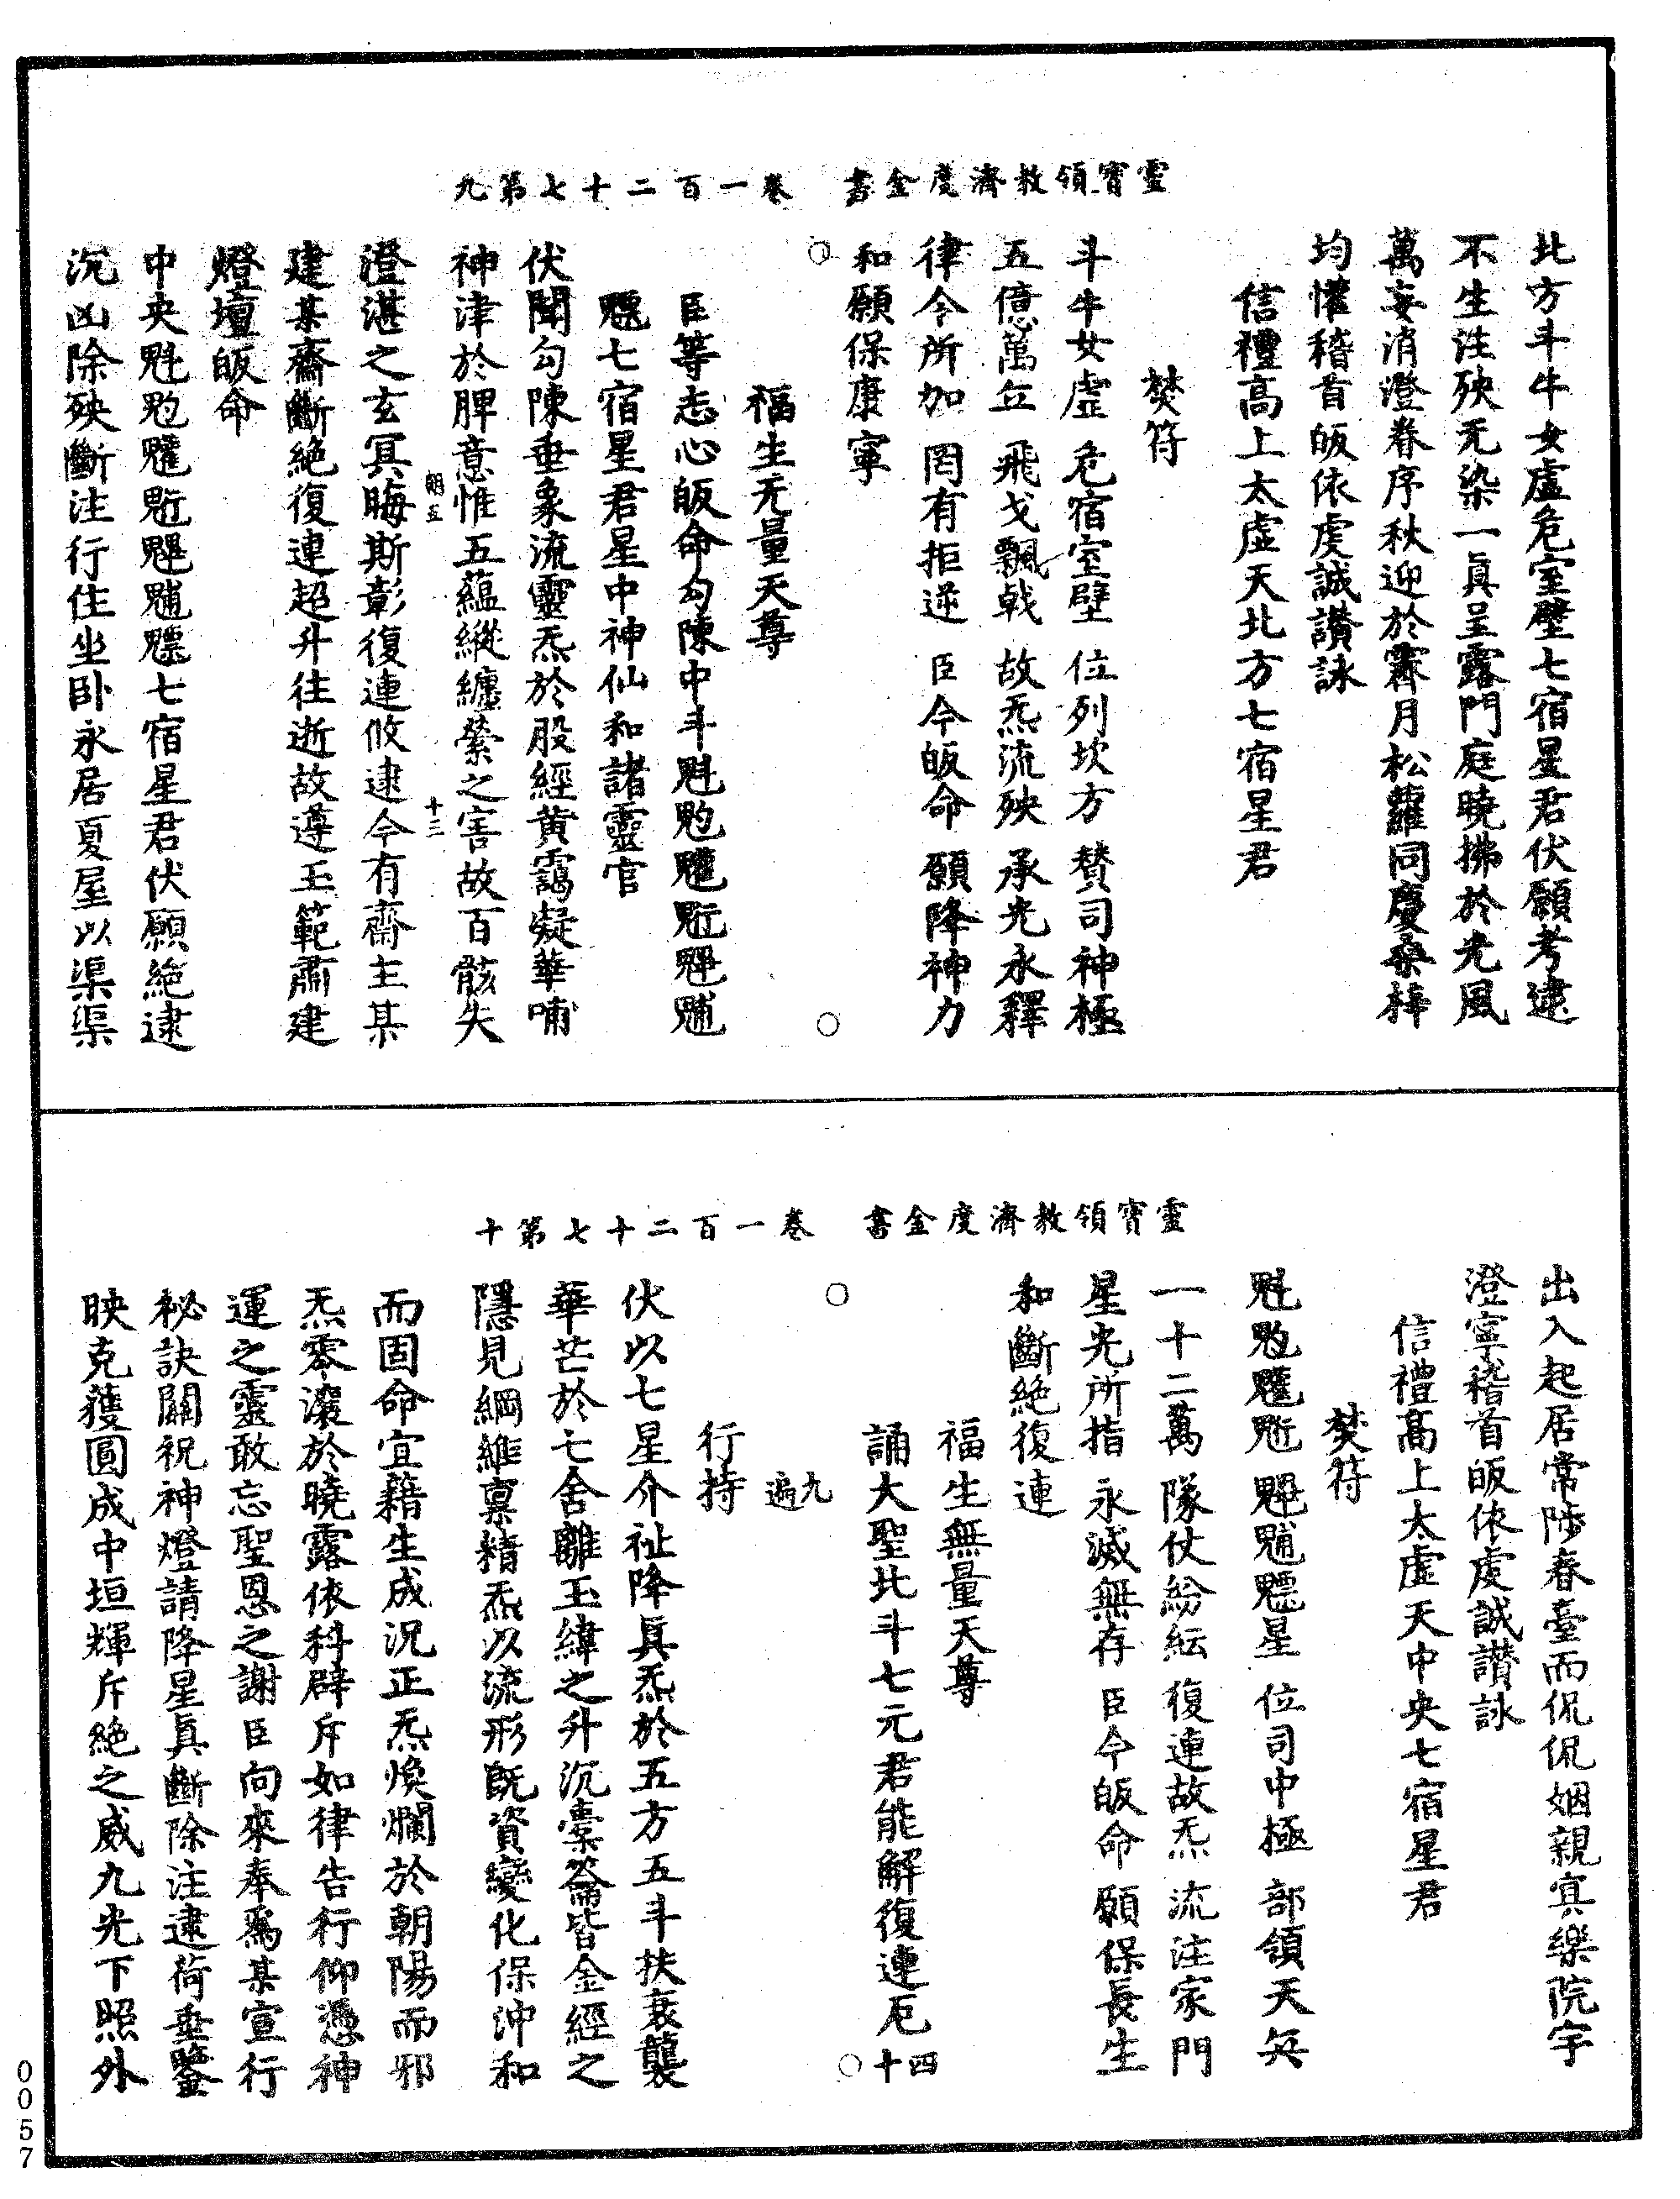 靈寶領教濟度金書　卷一百二十七第九
北方斗牛女虛危室壁七宿星君伏願考逮
不生注殃无染一眞呈露門庭曉拂於光風
萬妄消澄眷序秋迎於霽月松蘿同慶桑梓
均懽稽首皈依虔誠讚詠
信禮高上太虛天北方七宿星君
焚符
斗牛女虛　危宿室壁　位列坎方　賛司神極
五億萬兵　飛戈飄戟　故炁流殃　承光永釋
律令所加　罔有拒逆　臣今皈命　願降神力
和願保康寧
○　○
福生无量天尊
臣等志心皈命勾陳中斗魁䰢䰧䰡魓䰣
䰪七宿星君星中神仙和諸靈官
伏聞勾陳垂象流靈炁於股經黄靄凝華哺
神津於脾意惟五蘊縱纏縈之害故百骸失
朝五　十三
澄湛之玄冥晦斯彰復連攸逮今有齋主某
建某齋斷絶復連超升往逝故遵玉範肅建
燈壇皈命
中央魁䰢䰧䰡魓䰣䰪七宿星君伏願絶逮
沉凶除殃斷注行住坐卧永居夏屋以渠渠
靈寶領教濟度金書　卷一百二十七第十
出入起居常陟春臺而侃侃姻親寘樂院宇
澄寧稽首皈依虔誠讚詠
信禮高上太虛天中央七宿星君
焚符
魁䰢䰧䰡　魓䰣䰪星　位司中極　部領天兵
一十二萬　隊仗紛紜　復連故炁　流注家門
星光所指　永滅無存　臣今皈命　願保長生
和斷絶復連
福生無量天尊
誦大聖北斗七元君能解復連厄四十
○　○
九遍
行持
伏以七星介祉降眞炁於五方五斗扶衰襲
華芒於七舍離玉緯之升沉橐籥皆金經之
隱見綱維禀精炁以流形既資變化保沖和
而固命宜藉生成況正炁煥爛於朝陽而邪
炁零瀼於曉露依科辟斥如律告行仰憑神
運之靈敢忘聖恩之謝臣向來奉爲某宣行
秘訣關祝神燈請降星眞斷除注逮荷垂鑒
映克獲圓成中垣輝斥絶之威九光下照外
0057